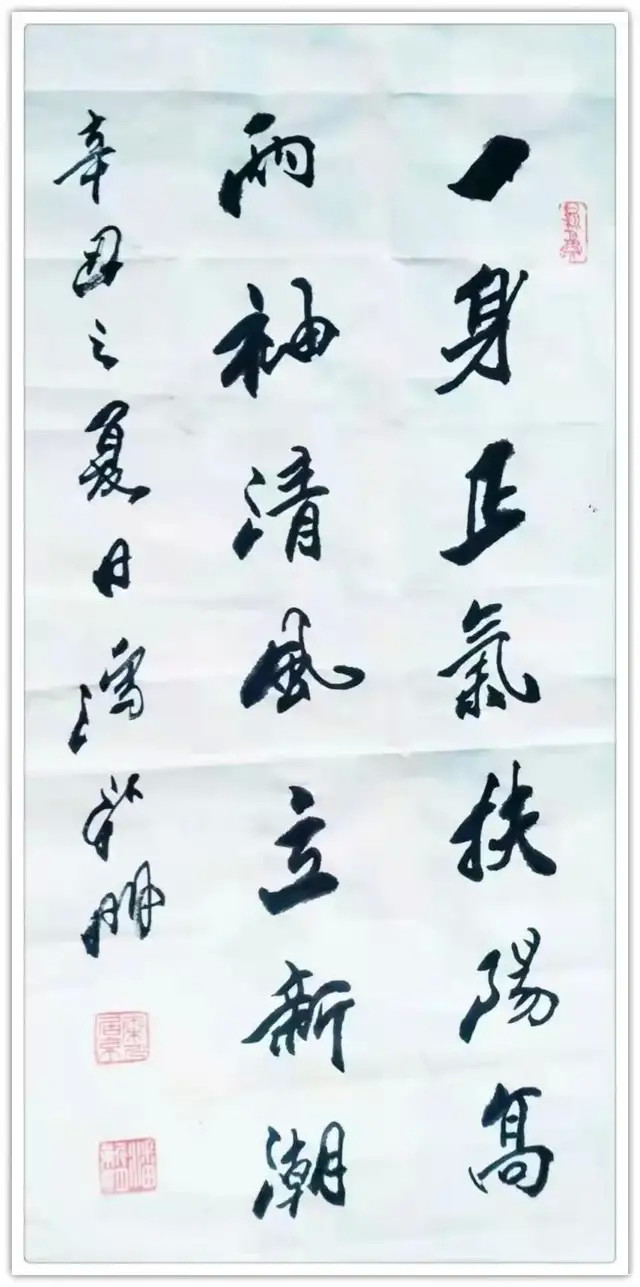 一身正氣扶陽高
兩袖清風立新潮
辛丑之夏日